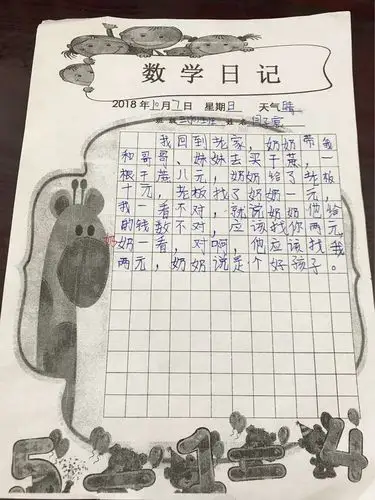 数学日记
2018年10月7日 星期日 天气晴
班级 姓名
我回到老家，奶奶带我
和哥哥、妹妹去买干蔗，一
根干蔗八元，奶奶给了老板
十元，老板找了奶奶一元，
我一看不对，就说奶奶他给
的钱数不对，应该找你两元，
奶一看，对啊，他应该找我
两元，奶奶说是个好孩子。
5-1=4